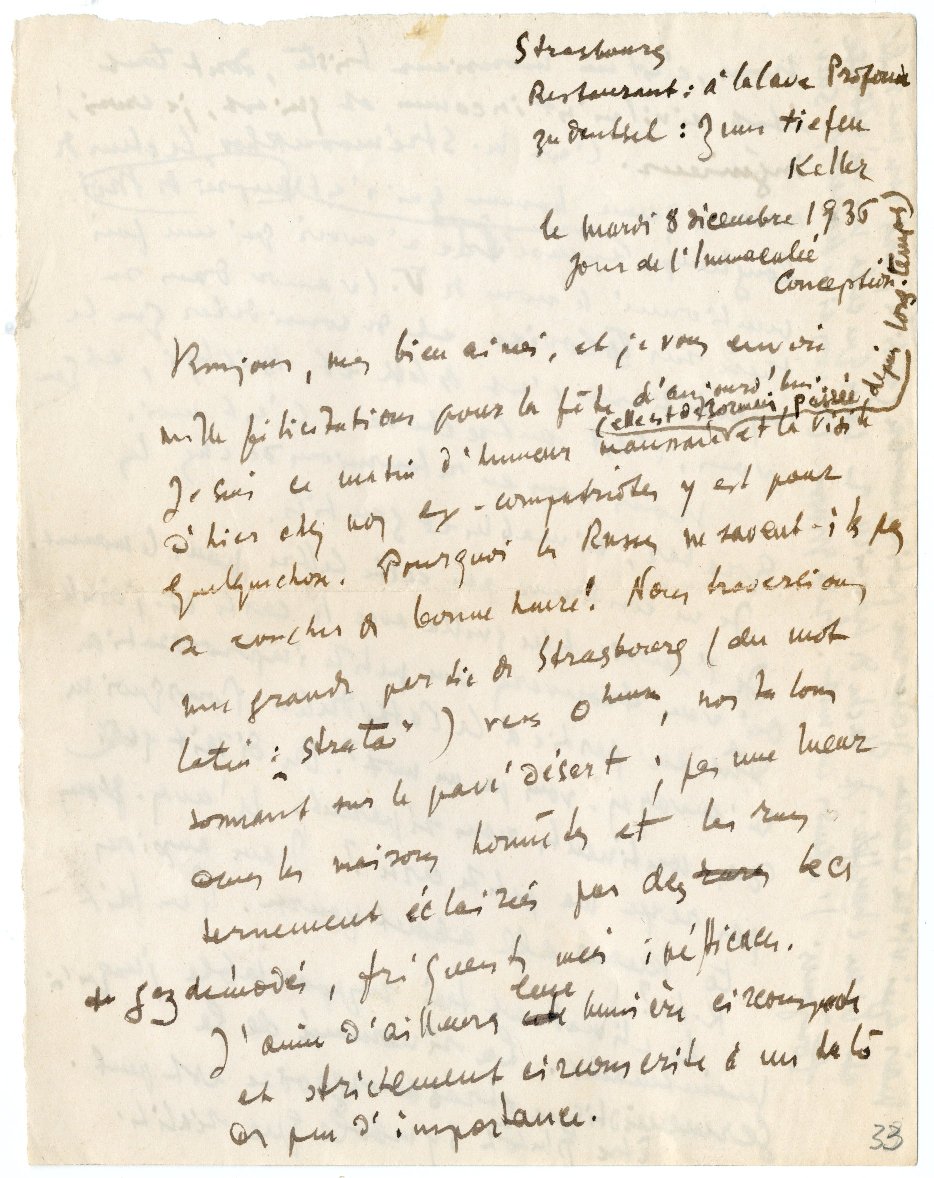 Strasbourg
Restaurant : à la Cave Profonde
zu deutsch : Zum tiefen
Keller
le mardi 8 décembre 1936
jour de l'Immaculée
Conception.
Bonjour, mes bien aimés, et je vous envoie
mille félicitations pour la fête d'aujourd'hui
(elle est désormais passée, depuis longtemps)
Je suis ce matin d'humeur mauvaise et la visite
d'hier chez nos ex-compatriotes y est pour
quelquechose. Pourquoi les Russes ne savent-ils pas
se coucher de bonne heure! Nous traversions
une grande partie de Strasbourg (du mot
latin : strata) vers 0 heure, nos talons
sonnant sur le pavé désert ; pas une lueur
dans les maisons honnêtes et les rues
ternement éclairées par des rares becs
de gaz démodés, fréquents mais inefficaces.
J'aime d'ailleurs leur lumière circonspecte
et strictement circonscrite à un halo
de peu d'importance.
33